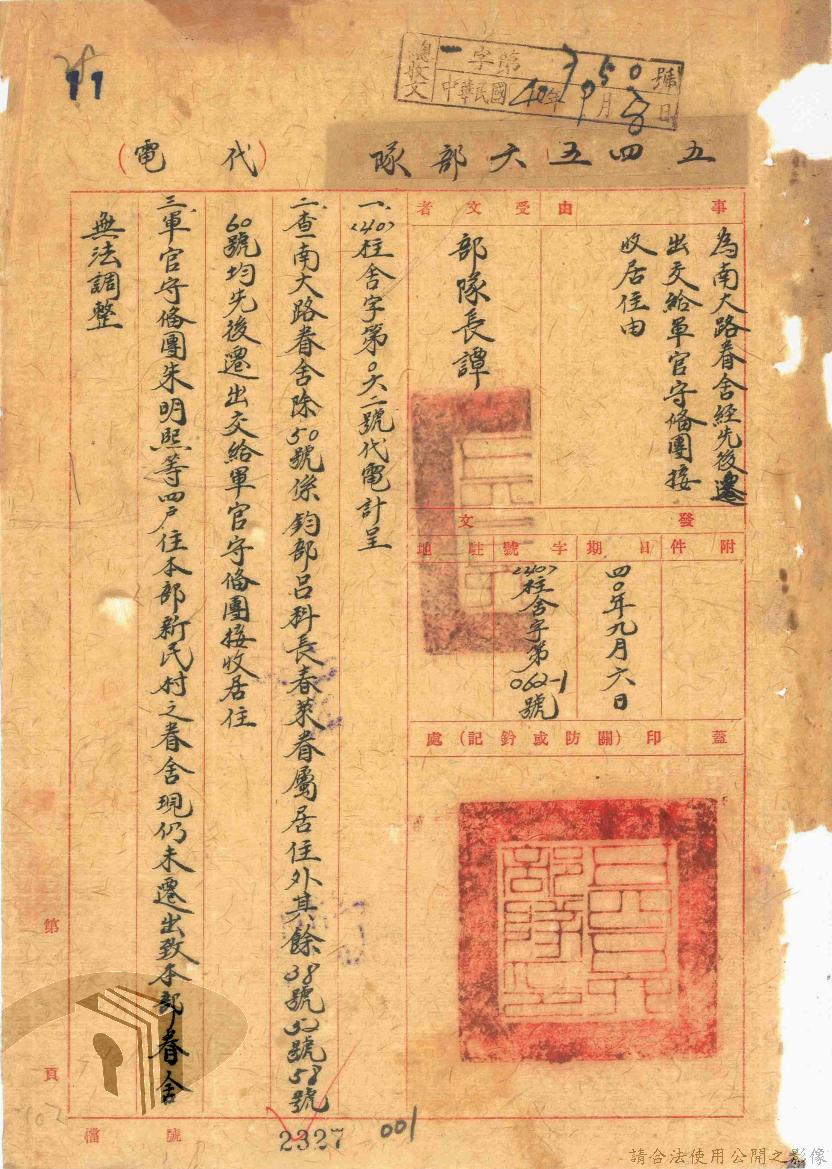 總收文
一字第7150號
中華民國40年9月8日
五四五六部隊（代電）
事由
為南大路眷舍經先後遷
出交給軍官守備團接
收居住由
受文者
部隊長譚
發文
附件
日期
四〇年九月六日
字號
(40)柱舍字第062-1號
駐地
蓋印（關防或鈐記）處
一、(40)柱舍字第〇六二號代電計呈
二、查南大路眷舍除50號係鈞部呂科長春萊眷屬居住外其餘38號52號58號
60號均先後遷出交給軍官守備團接收居住
三、軍官守備團朱明熙等四戶住本部新民村之眷舍現仍未遷出致本部眷舍
無法調整
第 頁
檔 號
2327
001
請合法使用公開之影像